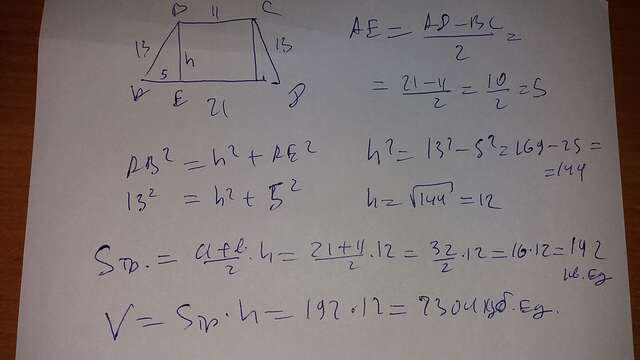 B 11 C
13 h 13
A 5 E D
21
AE = AD-BC/2 =
= 21-11/2 = 10/2 = 5
AB² = h² + AE²
13² = h² + 5²
h² = 13² - 5² = 169 - 25 =
= 144
h = √144 = 12
Sтр. = a+b/2 · h = 21+11/2 · 12 = 32/2 · 12 = 16 · 12 = 192
кв. ед
V = Sтр · h = 192 · 12 = 2304 куб. ед.